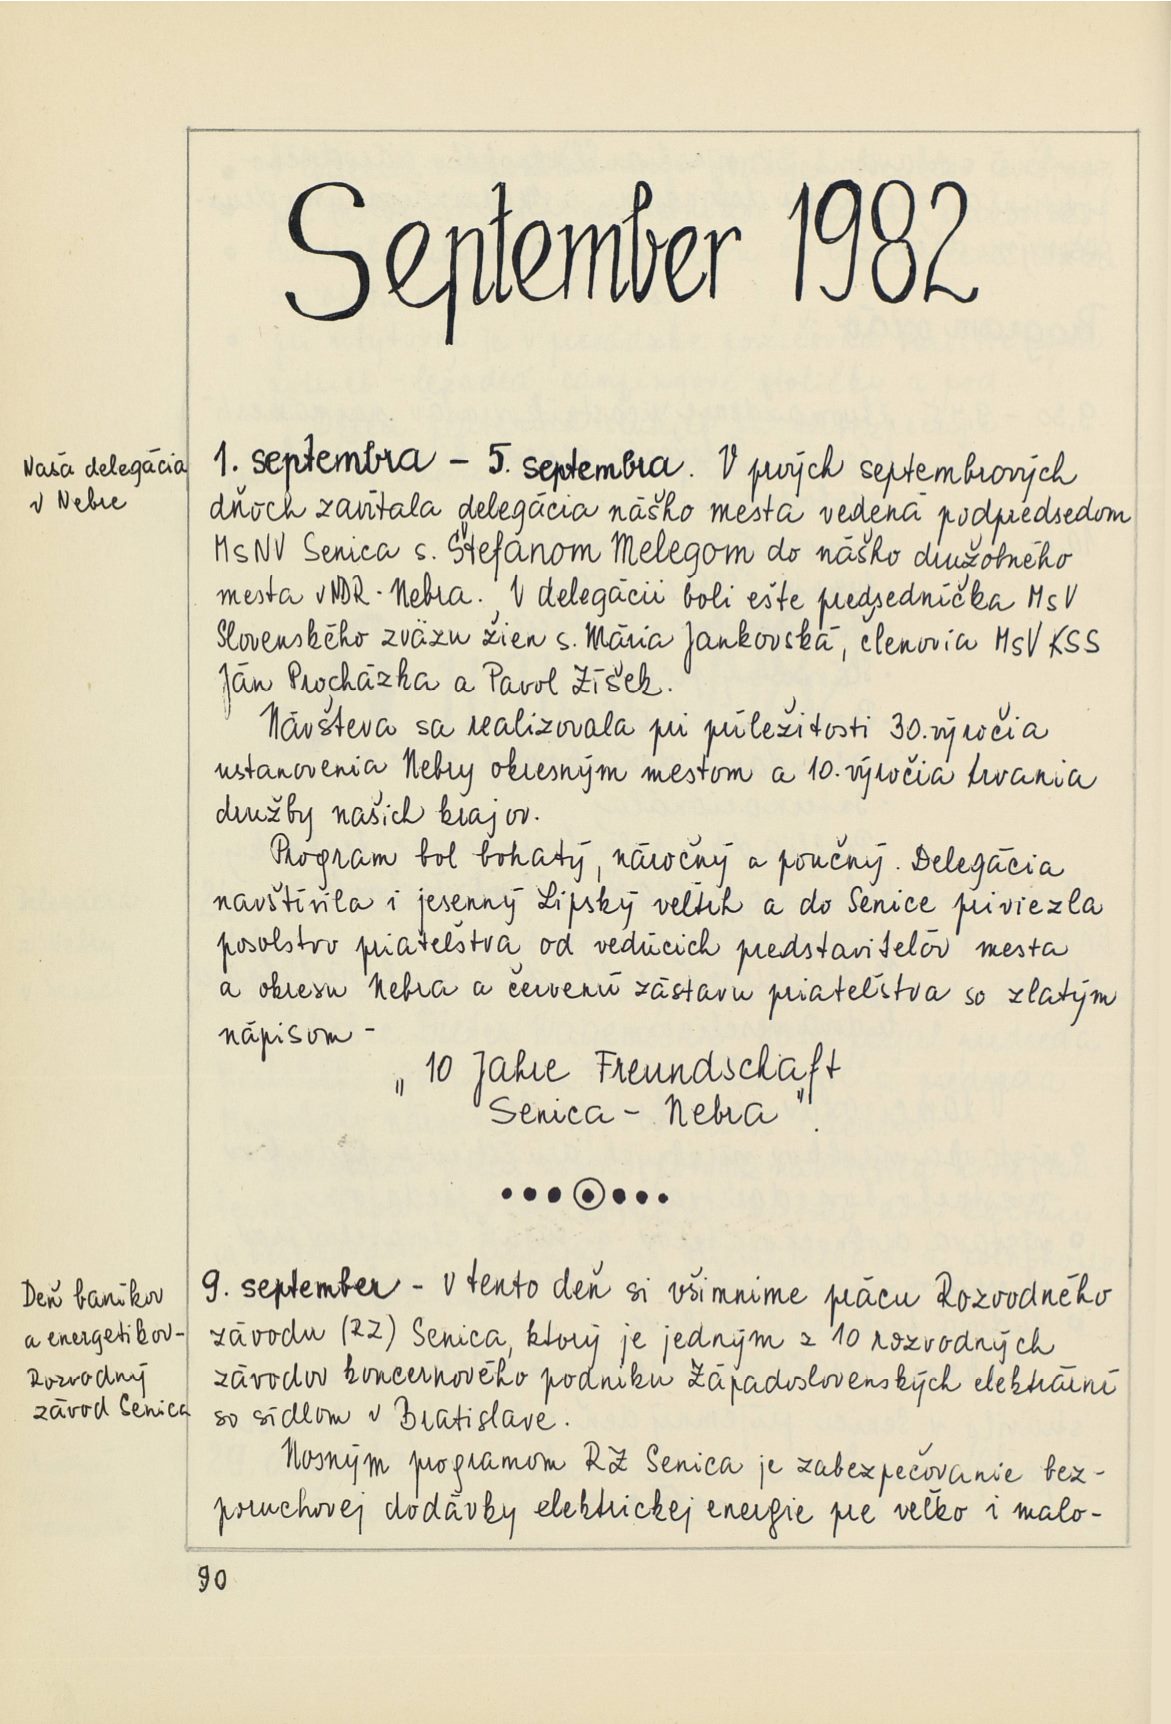 September 1982
Naša delegácia
v Nebre
1. septembra – 5. septembra. V prvých septembrových
dňoch zavítala delegácia nášho mesta vedená podpredsedom
MsNV Senica s. Štefánom Melegom do nášho družobného
mesta v NDR - Nebra. V delegácii boli ešte predsedníčka MsV
Slovenského zväzu žien s. Mária Jankovská, členovia MsV KSS
Ján Procházka a Pavol Zíšek.
Návšteva sa realizovala pri príležitosti 30. výročia
ustanovenia Nebry okresným mestom a 10. výročia trvania
družby našich krajov.
Program bol bohatý, náročný a poučný. Delegácia
navštívila i jesenný Lipský veľtrh a do Senice priviezla
posolstvo priateľstva od vedúcich predstaviteľov mesta
a okresu Nebra a červenú zástavu priateľstva so zlatým
nápisom -
„10 Jahre Freundschaft
Senica – Nebra".
Deň baníkov
a energetikov-
Rozvodný
závod Senica
9. september - V tento deň si všimnime prácu Rozvodného
závodu (RZ) Senica, ktorý je jedným z 10 rozvodných
závodov koncernového podniku Západoslovenských elektrární
so sídlom v Bratislave.
Nosným programom RZ Senica je zabezpečovanie bez-
poruchovej dodávky elektrickej energie pre veľko i malo-
90